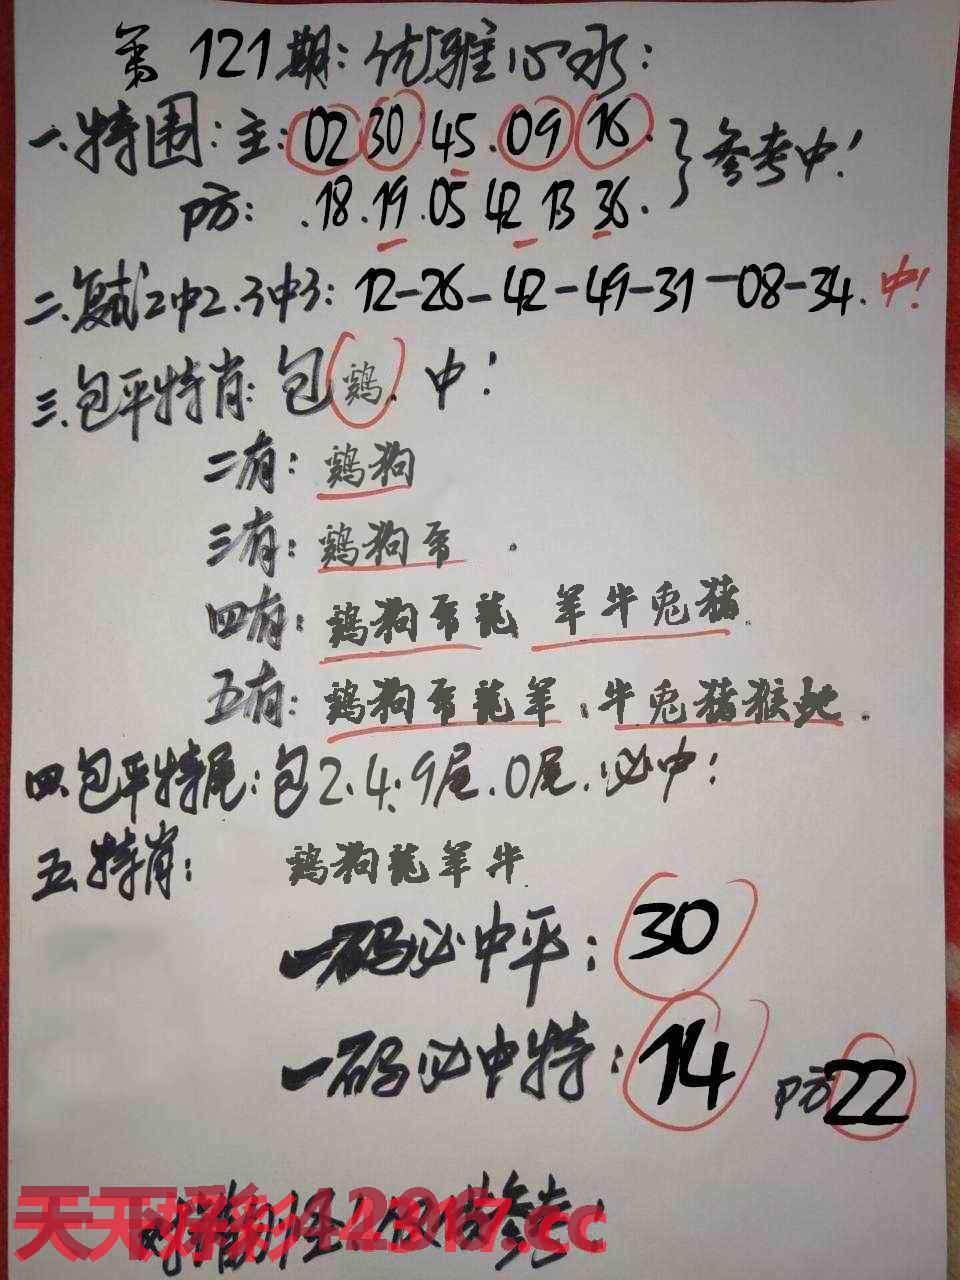 第121期:优雅心水:
一.特围:主:02 30 45.09 16.}参考中!
防:.18.19.05 42 13 36.
二.复式2中2.3中3:12-26-42-49-31-08-34.中!
三.包平特肖:包鷄.中!
二有:鷄狗
三有:鷄狗.
四有:鷄狗龍 羊牛兎猪.
五有:鷄狗龍羊.牛兎猪猴虵.
四.包平特尾:包2.4.9尾.0尾.必中!
五.特肖:鷄狗龍羊牛
一码必中平:30
一码必中特:14 防22
天天好彩 12317.cc